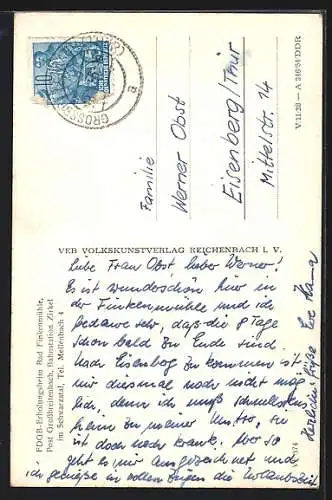 Familie
Werner Obst
Eisenberg/Thür
Mittelstr. 14
V 11 28 — A 346/54/DDR
VEB VOLKSKUNSTVERLAG REICHENBACH I. V.
FDGB-Erholungsheim Bad Finkenmühle,
Post Großbreitenbach, Bahnstation Zirkel
im Schwarzatal, Tel. Mellenbach 4
Liebe Frau Obst, lieber Werner!
Es ist wunderschön hier in
der Finkenmühle und ich
bedaure sehr, daß die 8 Tage
schon bald zu Ende sind.
Nach Eisenberg zu kommen ist
mir diesmal noch nicht mög
lich, denn ich muß schnellstens
heim zu meiner Mutter, sie
ist doch noch krank. Mir so
geht es mir ausgezeichnet und
ich genieße in vollen Zügen die Urlaubszeit
Herzliche Grüße Eure Hanna